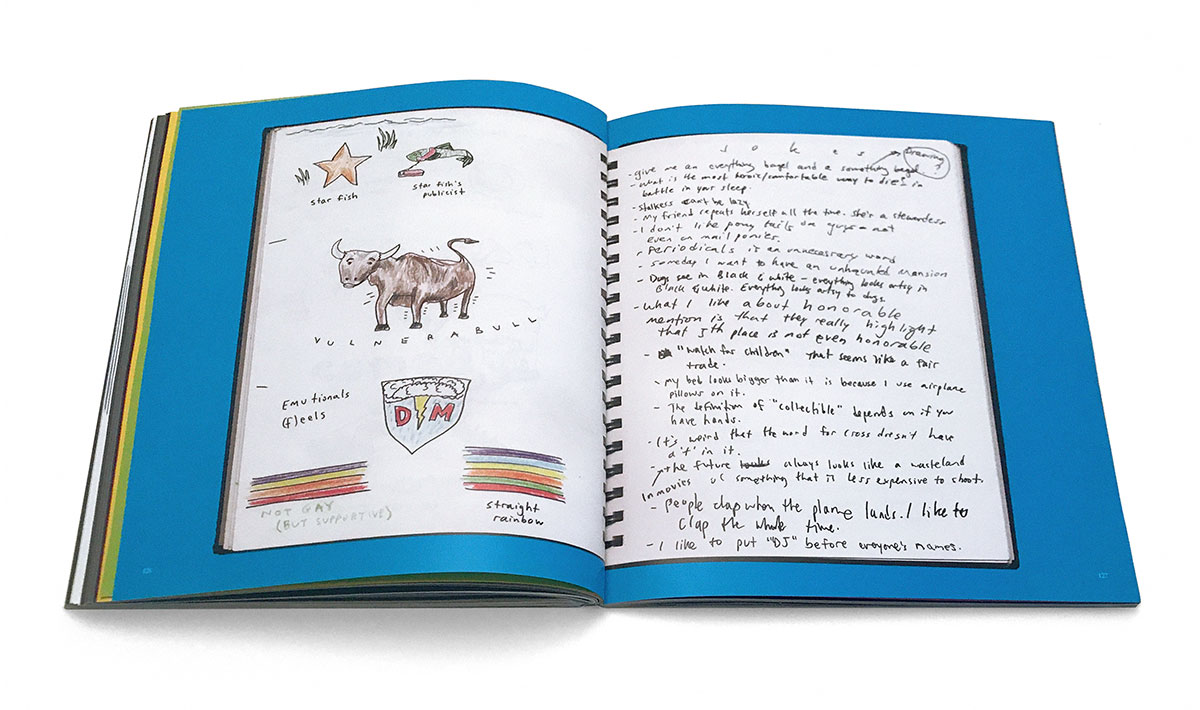 star fish
star fish's
publicist
VULNERABULL
Emutionals
(f)eels
D M
NOT GAY
(BUT SUPPORTIVE)
straight
rainbow
Jokes
Drawing
?
- give me an everything bagel and a something bagel
- what is the most heroic/comfortable way to die? in
battle in your sleep.
- Stalkers can't be lazy
- My friend repeats herself all the time. She's a stewardess
- I don't like pony tails on guys - not
even on mail ponies.
- Periodicals is an unnecessary word
- Someday I want to have an unhaunted mansion
- Dogs see in Black & white - everything looks artsy in
Black & white. Everything looks artsy to dogs.
- What I like about honorable
mention is that they really highlight
that 5th place is not even honorable
- "Watch for children" That seems like a fair
trade.
- my bed looks bigger than it is because I use airplane
pillows on it.
- The definition of "collectible" depends on if you
have hands.
- It's weird that the word for cross doesn't have
a 't' in it.
- the future always looks like a wasteland
In movies something that is less expensive to shoot.
- People clap when the plane lands. I like to
clap the whole time.
- I like to put "DJ" before everyone's names.